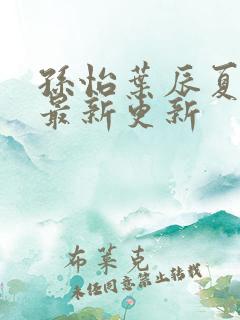 孫怡葉辰夏
最新更新
布萊克
未經同意禁止轉載